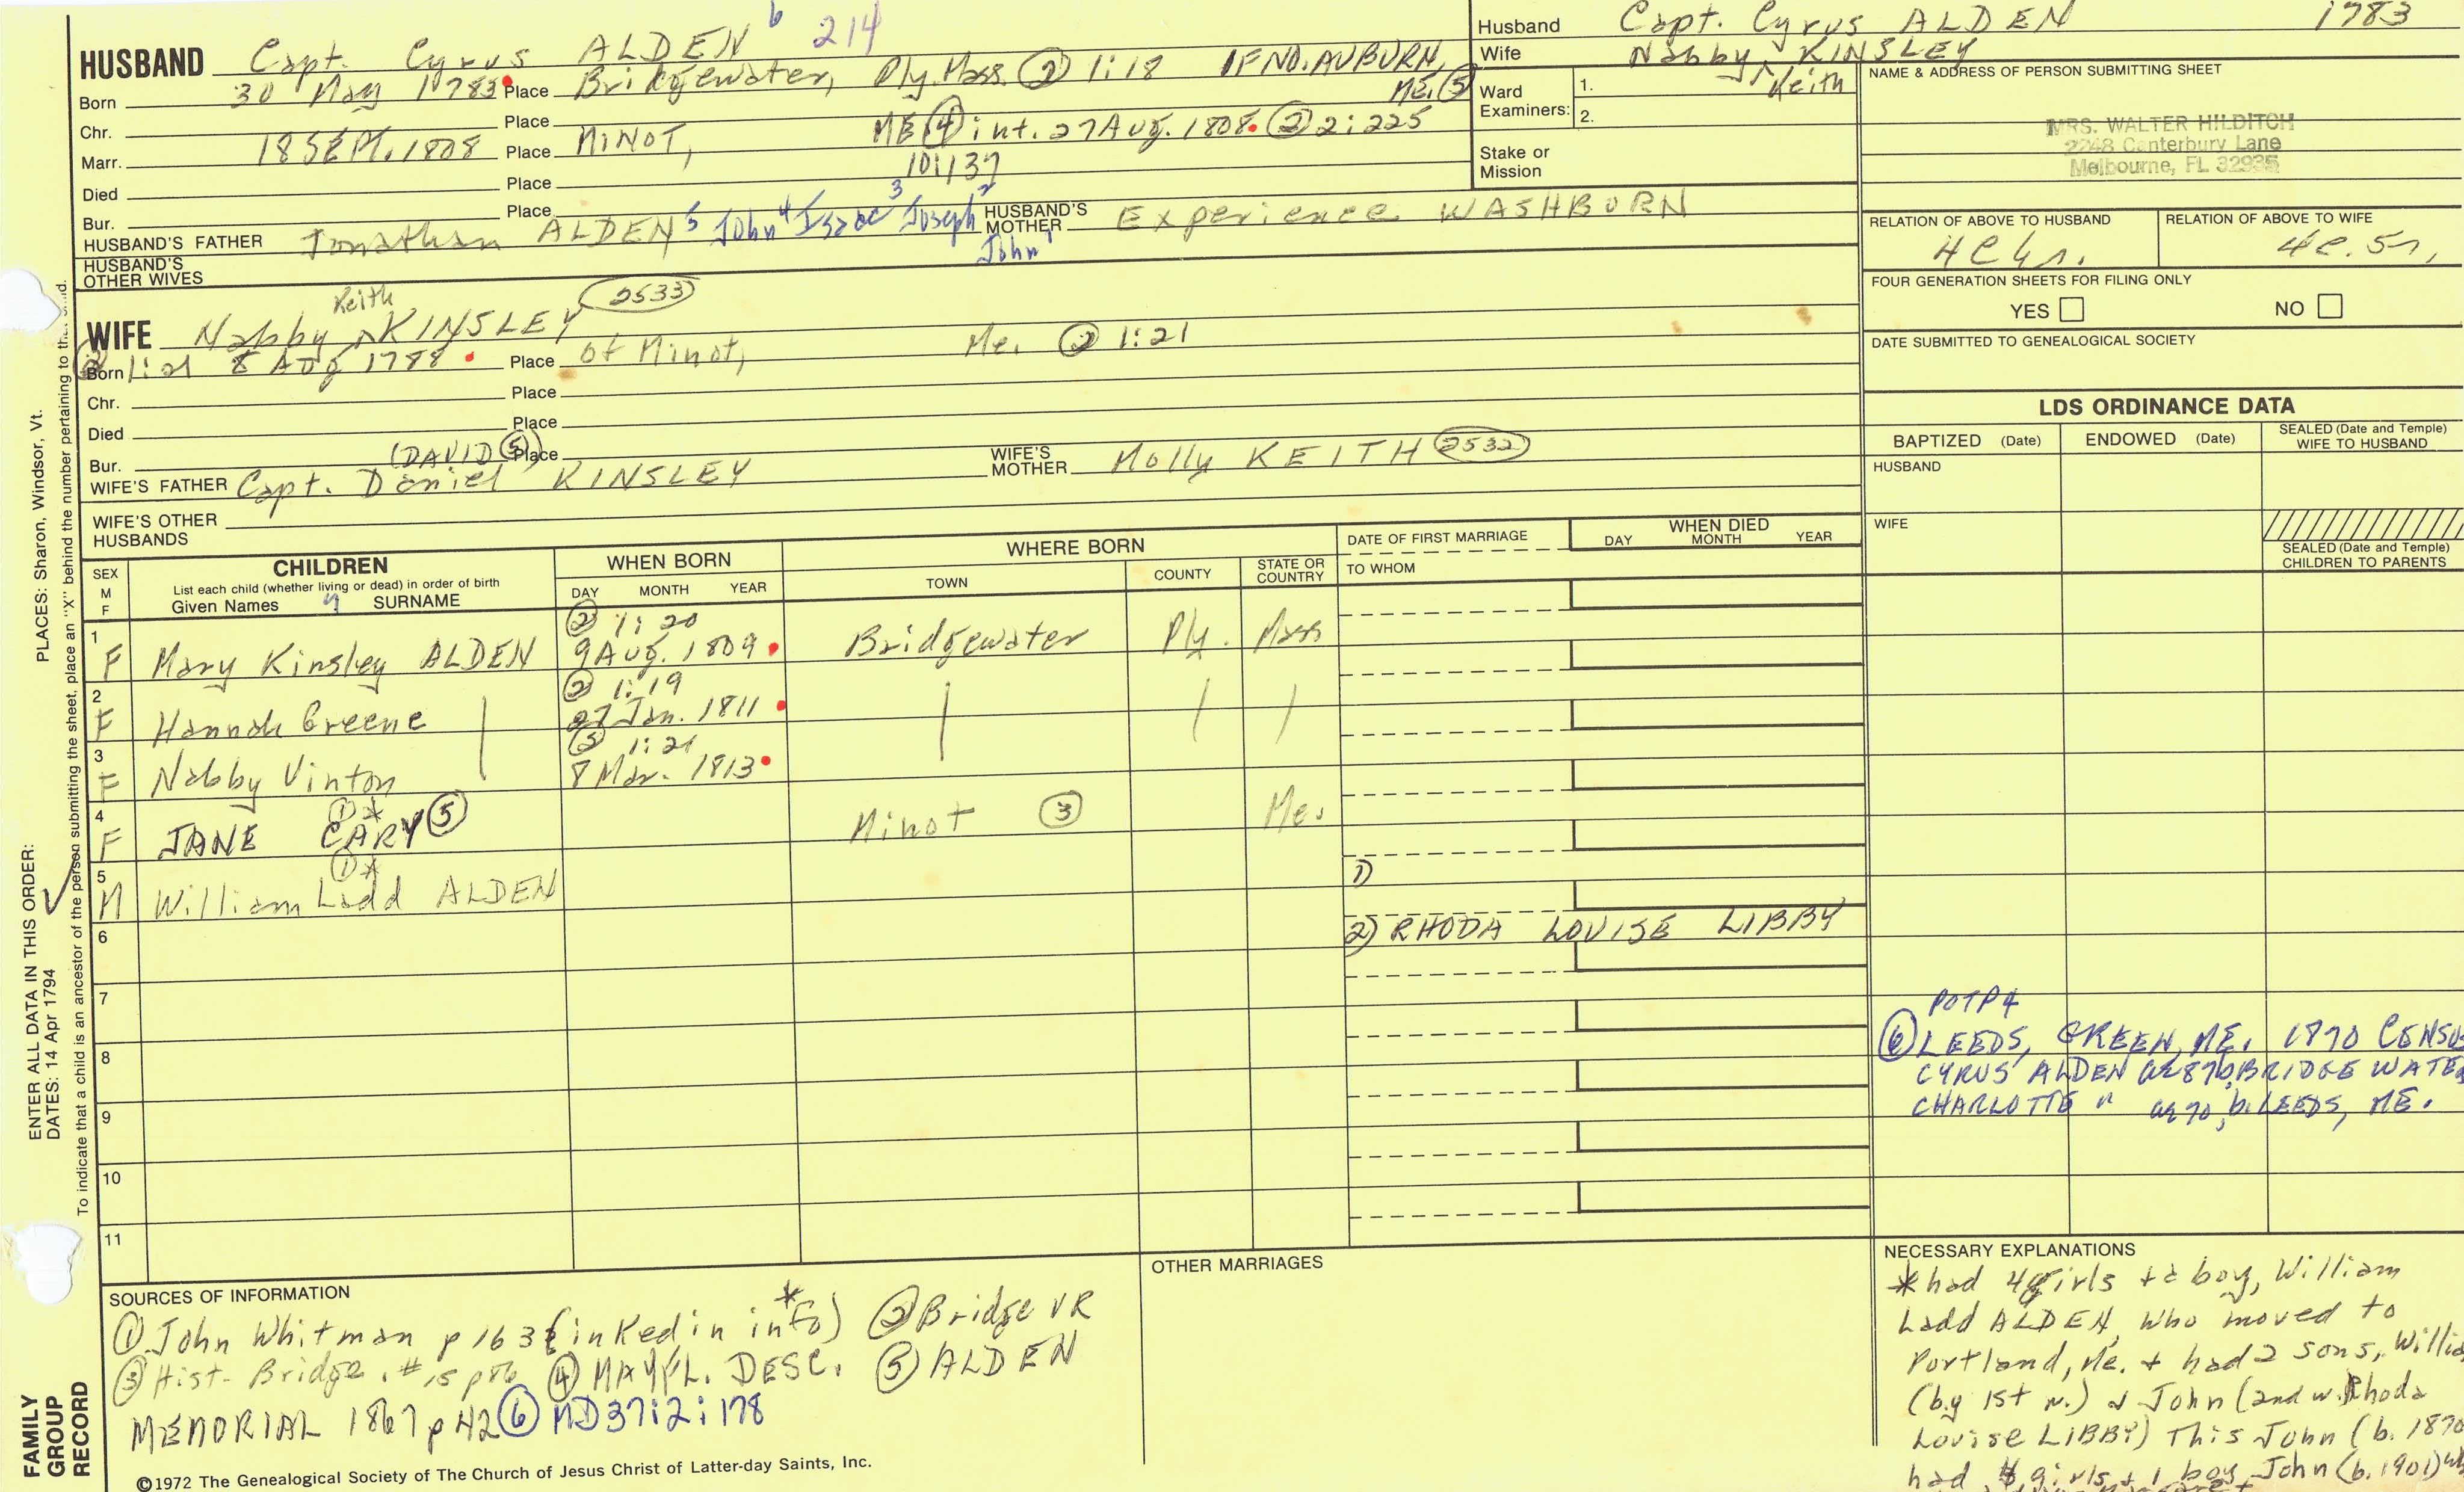 HUSBAND Capt. Cyrus ALDEN 6 214
Born 30 May 1783 Place Bridgewater, Ply. Mass. ② 1:18 OF NO. AUBURN, ME. ⑤
Chr. Place
Marr. 18 SEPT. 1808 Place MINOT, ME ④ int. 27 AUG. 1808. ② 2:225
Died Place 101137
Bur. Place
HUSBAND'S FATHER Jonathan ALDEN 5 John 4 Isaac 3 Joseph 2 John 1 HUSBAND'S MOTHER Experience WASHBURN
HUSBAND'S OTHER WIVES
WIFE Nabby ^ Keith KINSLEY 2533
Born ② 1:21 8 AUG 1788 Place of Minot, Me. ② 1:21
Chr. Place
Died Place
Bur. Place
WIFE'S FATHER Capt. Daniel (DAVID ⑤) KINSLEY WIFE'S MOTHER Molly KEITH 2532
WIFE'S OTHER HUSBANDS
Husband Capt. Cyrus ALDEN 1783
Wife Nabby ^ Keith KINSLEY
Ward Examiners: 1. 2.
Stake or Mission
NAME & ADDRESS OF PERSON SUBMITTING SHEET
MRS. WALTER HILDITCH
2248 Canterbury Lane
Melbourne, FL 32935
RELATION OF ABOVE TO HUSBAND RELATION OF ABOVE TO WIFE
FOUR GENERATION SHEETS FOR FILING ONLY
YES NO
DATE SUBMITTED TO GENEALOGICAL SOCIETY
LDS ORDINANCE DATA
BAPTIZED (Date) ENDOWED (Date) SEALED (Date and Temple) WIFE TO HUSBAND
HUSBAND
WIFE
SEALED (Date and Temple) CHILDREN TO PARENTS
SEX M F CHILDREN WHEN BORN WHERE BORN DATE OF FIRST MARRIAGE WHEN DIED
List each child (whether living or dead) in order of birth
Given Names SURNAME DAY MONTH YEAR TOWN COUNTY STATE OR COUNTRY TO WHOM DAY MONTH YEAR
② 1:20
1 F Mary Kinsley ALDEN 9 AUG. 1809 Bridgewater Ply. Mass
② 1:19
2 F Hannah Greene 27 Jan. 1811
1:21
3 F Nabby Vinton 8 Mar. 1813
①*
4 F JANE CARY ⑤ Minot ③ Me.
①*
5 M William Ladd ALDEN 1)
6 2) RHODA LOUISE LIBBY
7
8
9
10
11
POTP4
⑥ LEEDS, GREEN, ME. 1870
CYRUS ALDEN
CHARLOTTE " b. LEEDS, ME.
SOURCES OF INFORMATION
① John Whitman p 163 (inked in info) * ② Bridge VR
③ Hist. Bridge. #15 p86 ④ MAYFL. DESC. ⑤ ALDEN
MEMORIAL 1867 p 42 ⑥ MD37:2:178
OTHER MARRIAGES
NECESSARY EXPLANATIONS
* had 4 girls + a boy, William
Ladd ALDEN, who moved to
Portland, Me. + had 2 sons,
(by 1st w.) & John (2nd w. Rhoda
Louise LIBBY) This John (b. 1870
had girls + 1 boy, John (b. 1901)
©1972 The Genealogical Society of The Church of Jesus Christ of Latter-day Saints, Inc.
FAMILY GROUP RECORD
ENTER ALL DATA IN THIS ORDER: PLACES: Sharon, Windsor, Vt.
DATES: 14 Apr 1794
To indicate that a child is an ancestor of the person submitting the sheet, place an "X" behind the number pertaining to that child.